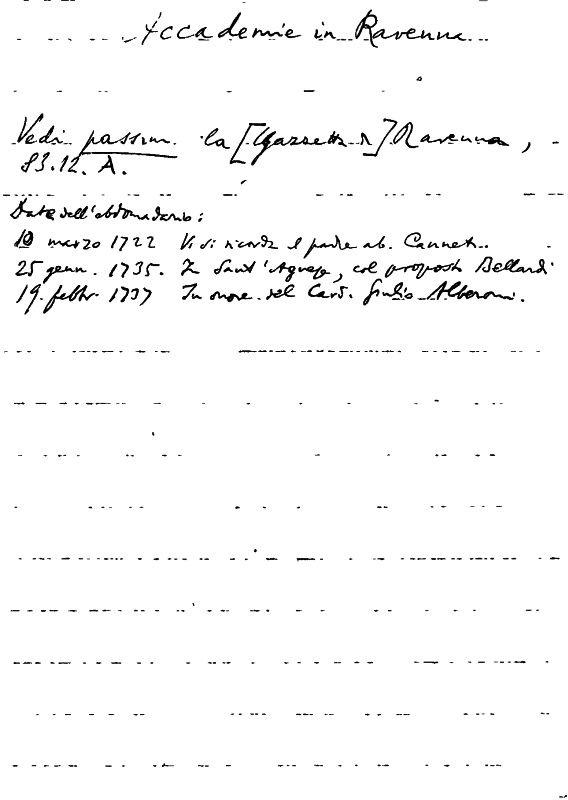 Accademie in Ravenna
Vedi passim la [Gazzetta di] Ravenna,
83.12.A.
Date dell'ebdomadario:
10 marzo 1722 Vi si ricorda il padre ab. Canneti.
25 genn. 1735. In Sant'Agnese, col proposto Bellardi
19. febbr. 1737 In onore del Card. Giulio Alberoni.